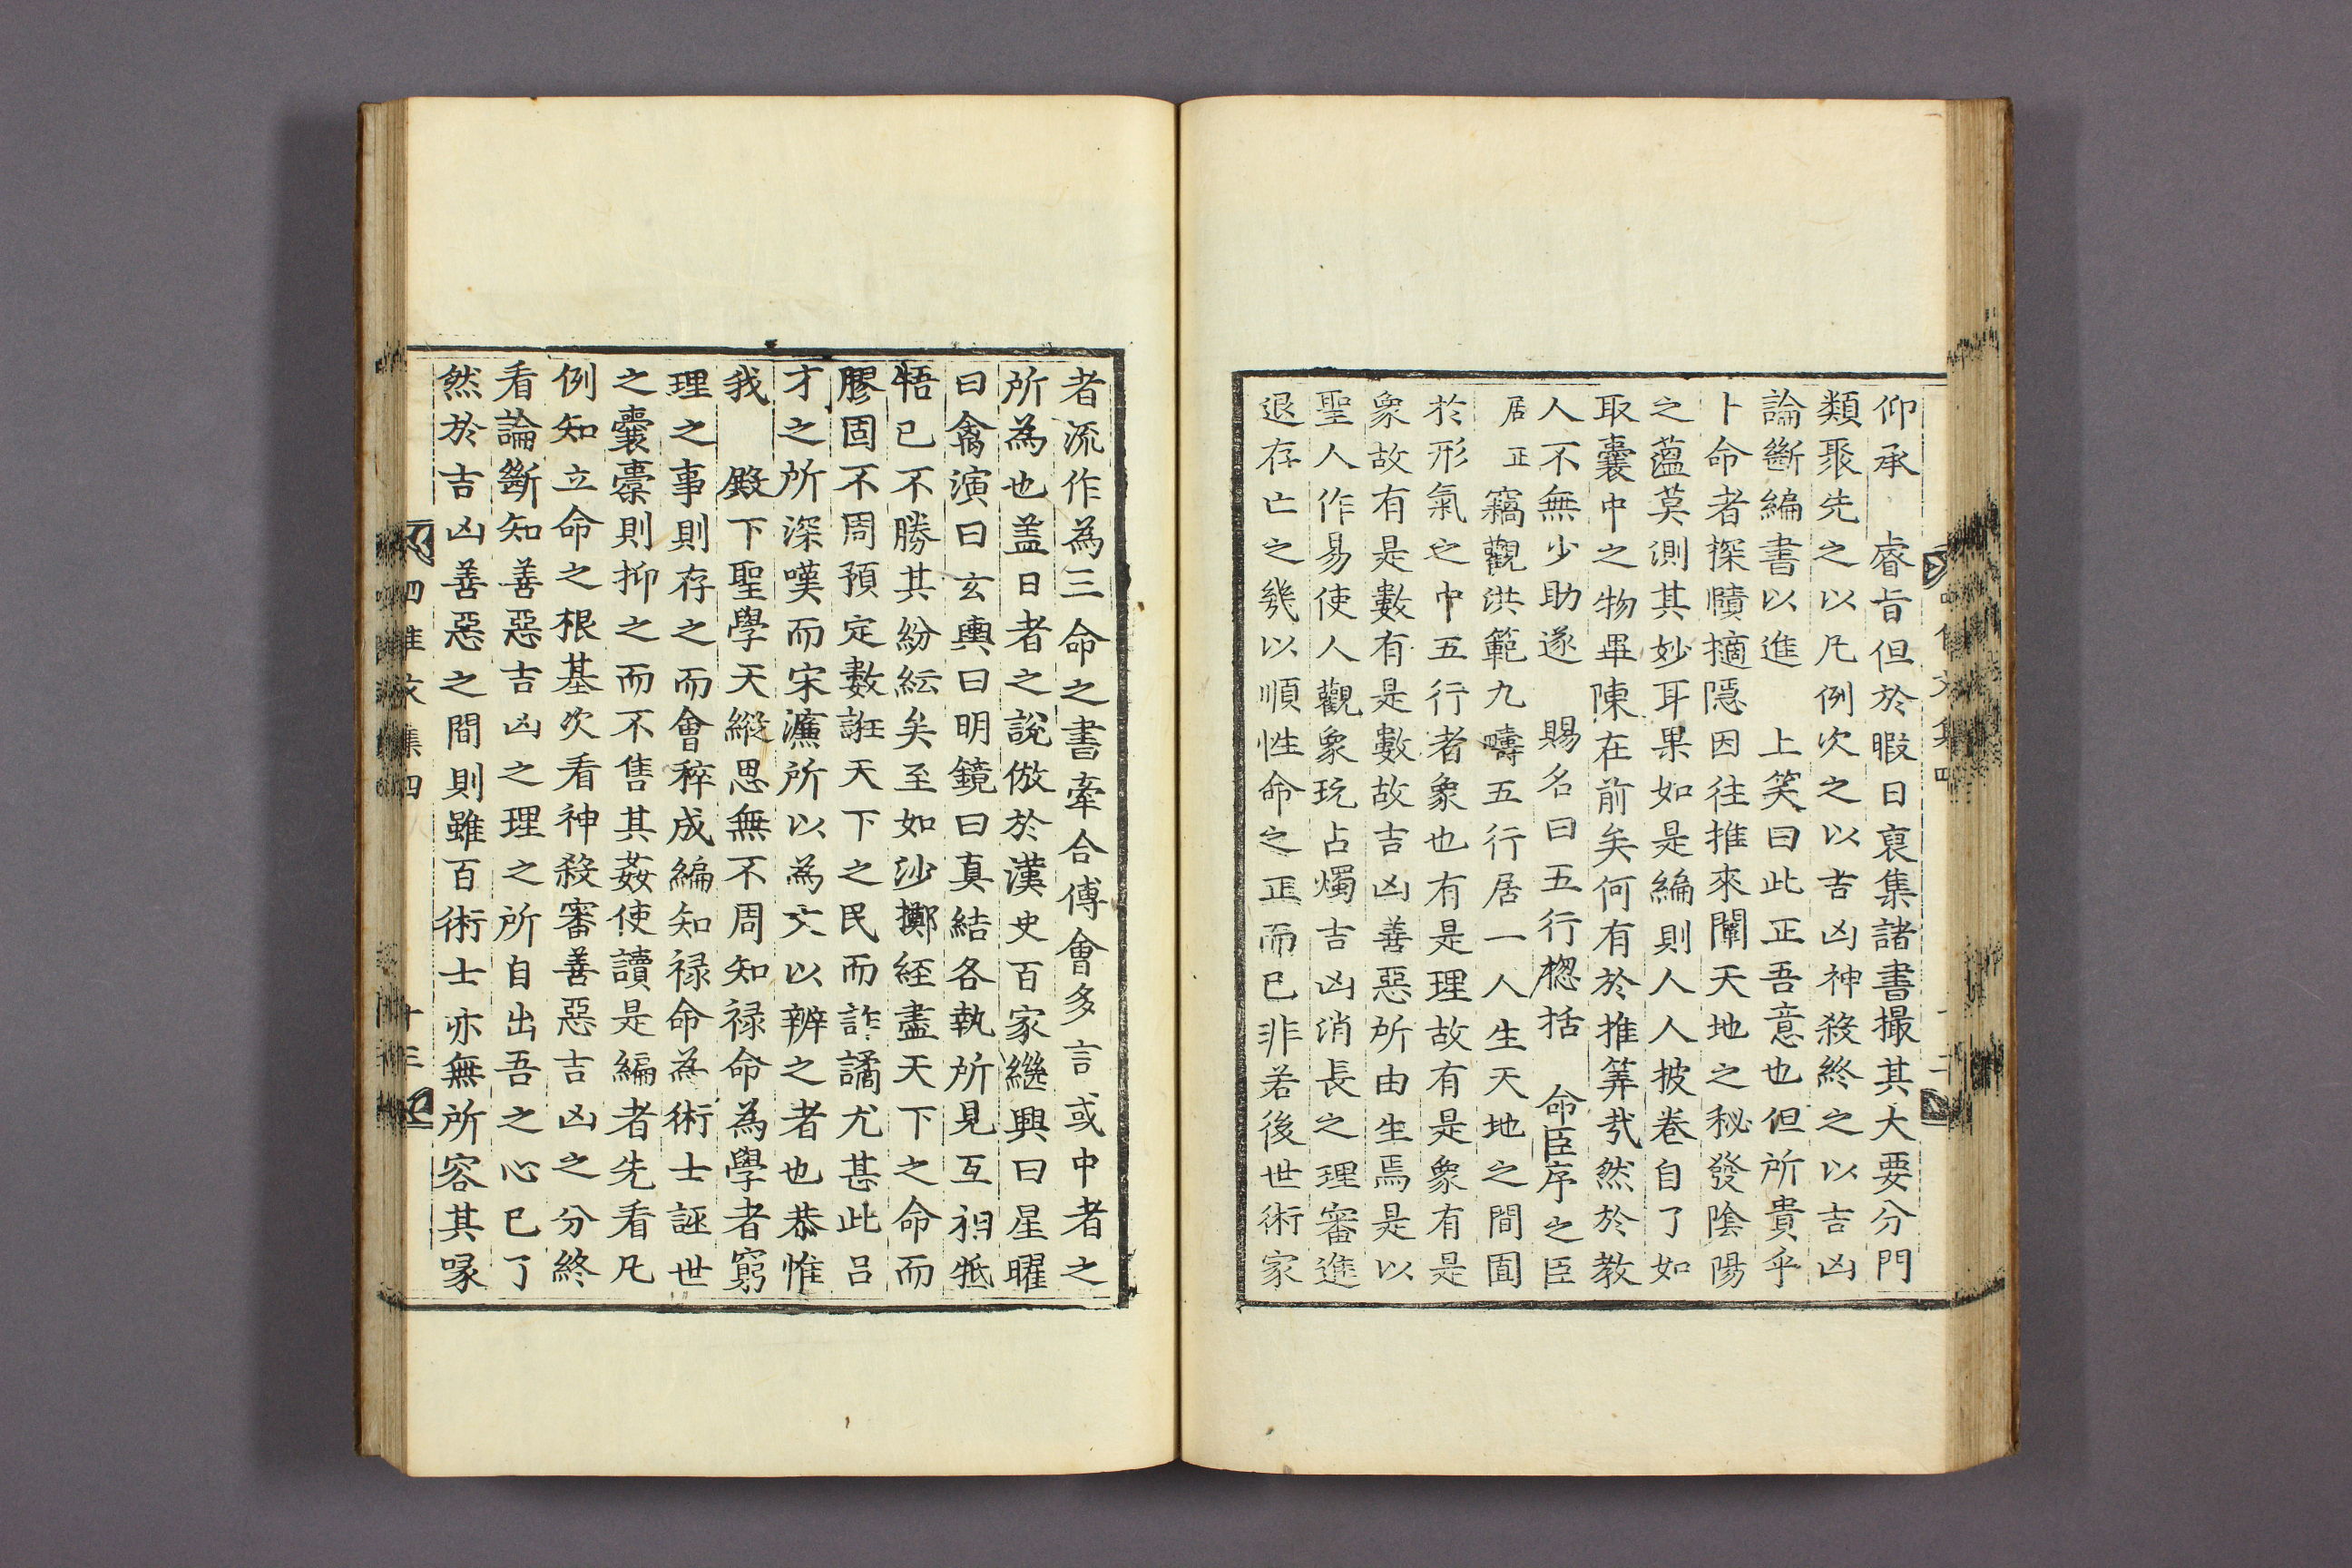 仰承 睿旨但於暇日裒集諸書撮其大要分門
類聚先之以凡例次之以吉凶神殺終之以吉凶
論斷編書以進 上笑曰此正吾意也但所貴乎
卜命者探賾擿隱因往推來闡天地之秘發陰陽
之蘊莫測其妙耳果如是編則人人披卷自了如
取囊中之物畢陳在前矣何有於推筭㢤然於教
人不無少助遂 賜名曰五行楤括 命臣序之臣
居正竊觀洪範九疇五行居一人生天地之間囿
於形氣之中五行者象也有是理故有是象有是
象故有是數有是數故吉凶善惡所由生焉是以
聖人作易使人觀象玩占燭吉凶消長之理審進
退存亡之幾以順性命之正而已非若後世術家
者流作為三命之書牽合傅會多言或中者之
所為也盖日者之說倣於漢史百家繼興曰星曜
曰禽演曰玄輿曰明鏡曰真結各執所見互相牴
牾已不勝其紛紜矣至如沙擲経盡天下之命而
膠固不周預定數誑天下之民而詐譎尤甚此呂
才之所深嘆而宋濂所以為文以辨之者也恭惟
我 殿下聖學天縱思無不周知祿命為學者窮
理之事則存之而會稡成編知祿命為術士誣世
之囊橐則抑之而不售其姦使讀是編者先看凡
例知立命之根基次看神殺審善惡吉凶之分終
看論斷知善惡吉凶之理之所自出吾之心已了
然於吉凶善惡之間則雖百術士亦無所容其喙
四佳文集四
十三